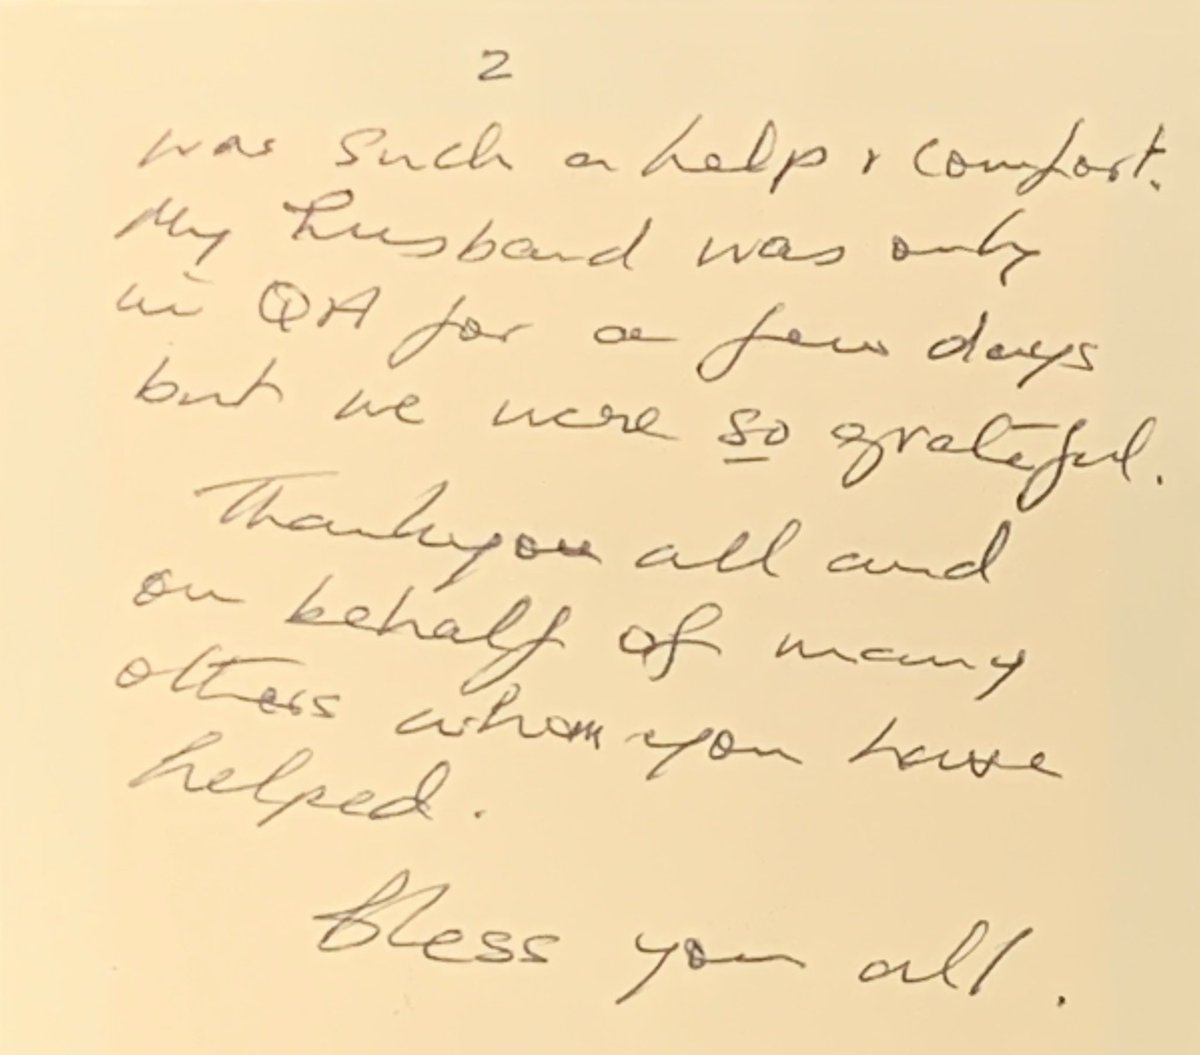 2
was such a help & comfort.
My husband was only
in QA for a few days
but we were so grateful.
Thankyou all and
on behalf of many
others whom you have
helped.
Bless you all.